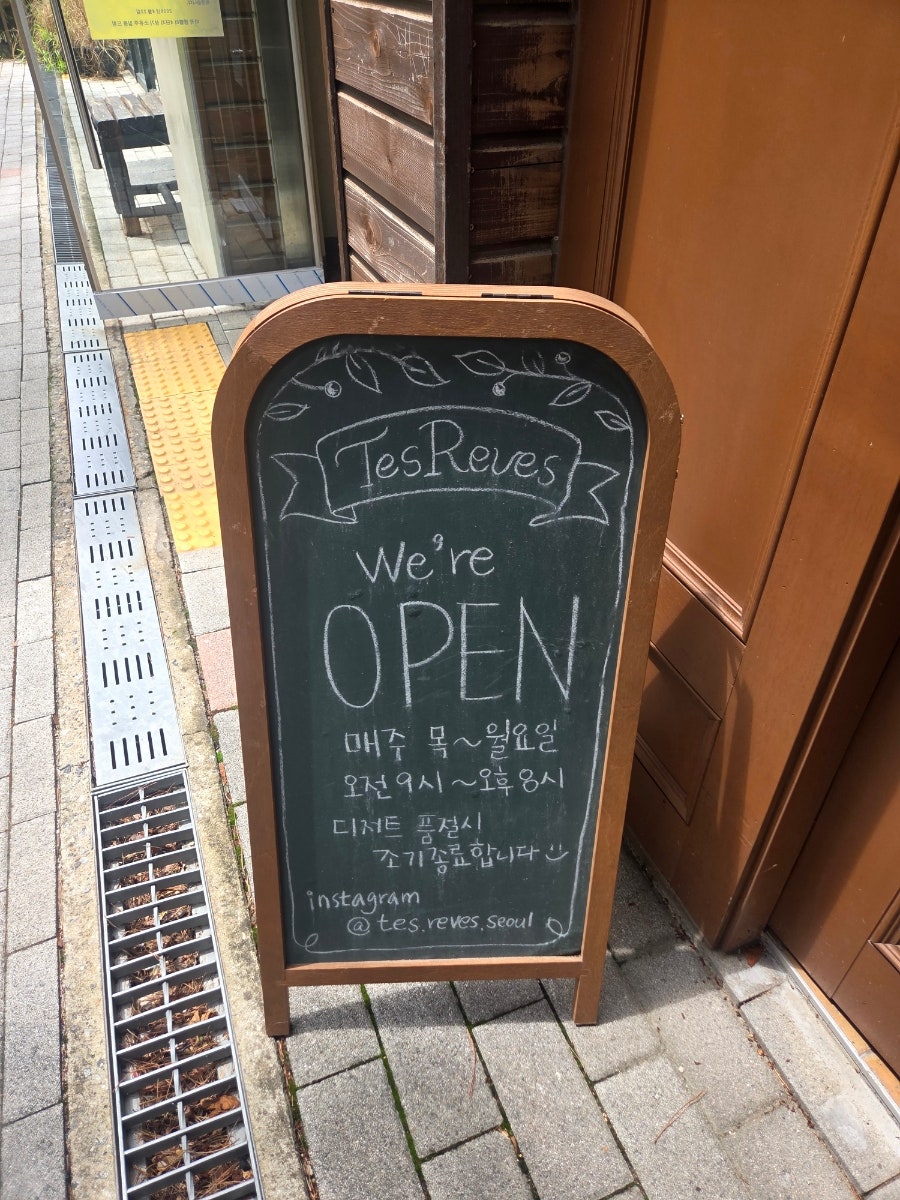 TesReves
We're
OPEN
매주 목~월요일
오전9시~오후8시
디저트 품절시
조기종료합니다
instagram
@tes.reves.seoul